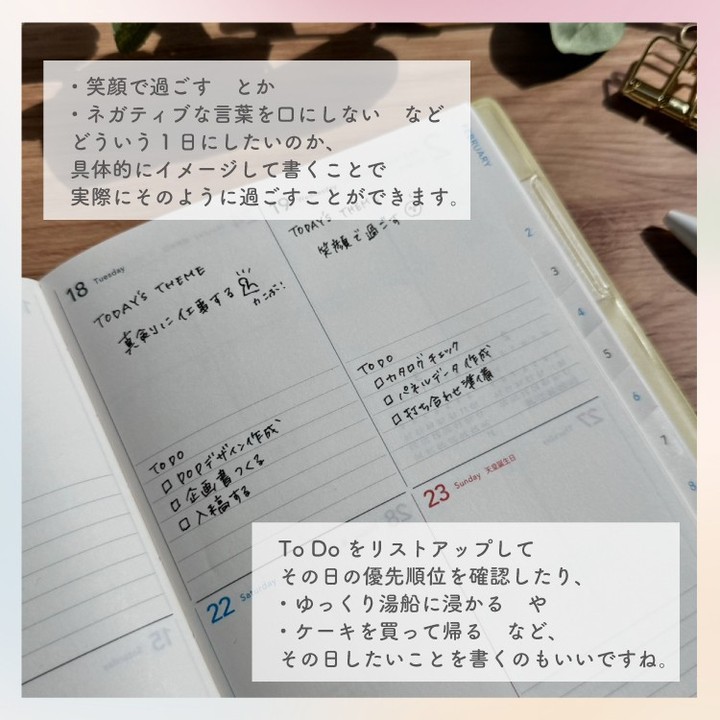 ・笑顔で過ごす　とか
・ネガティブな言葉を口にしない　など
どういう1日にしたいのか、
具体的にイメージして書くことで
実際にそのように過ごすことができます。
FEBRUARY
18 Tuesday
TODAY'S THEME
真剣に仕事する
TODO
□ POPデザイン作成
□ 企画書つくる
□ 入稿する
TODAY'S
笑顔で過ごす
TODO
□ カタログチェック
□ パネルデータ作成
□ 打ち合わせ準備
22
23 Sunday 天皇誕生日
2
3
4
5
6
7
8
To Do をリストアップして
その日の優先順位を確認したり、
・ゆっくり湯船に浸かる　や
・ケーキを買って帰る　など、
その日したいことを書くのもいいですね。